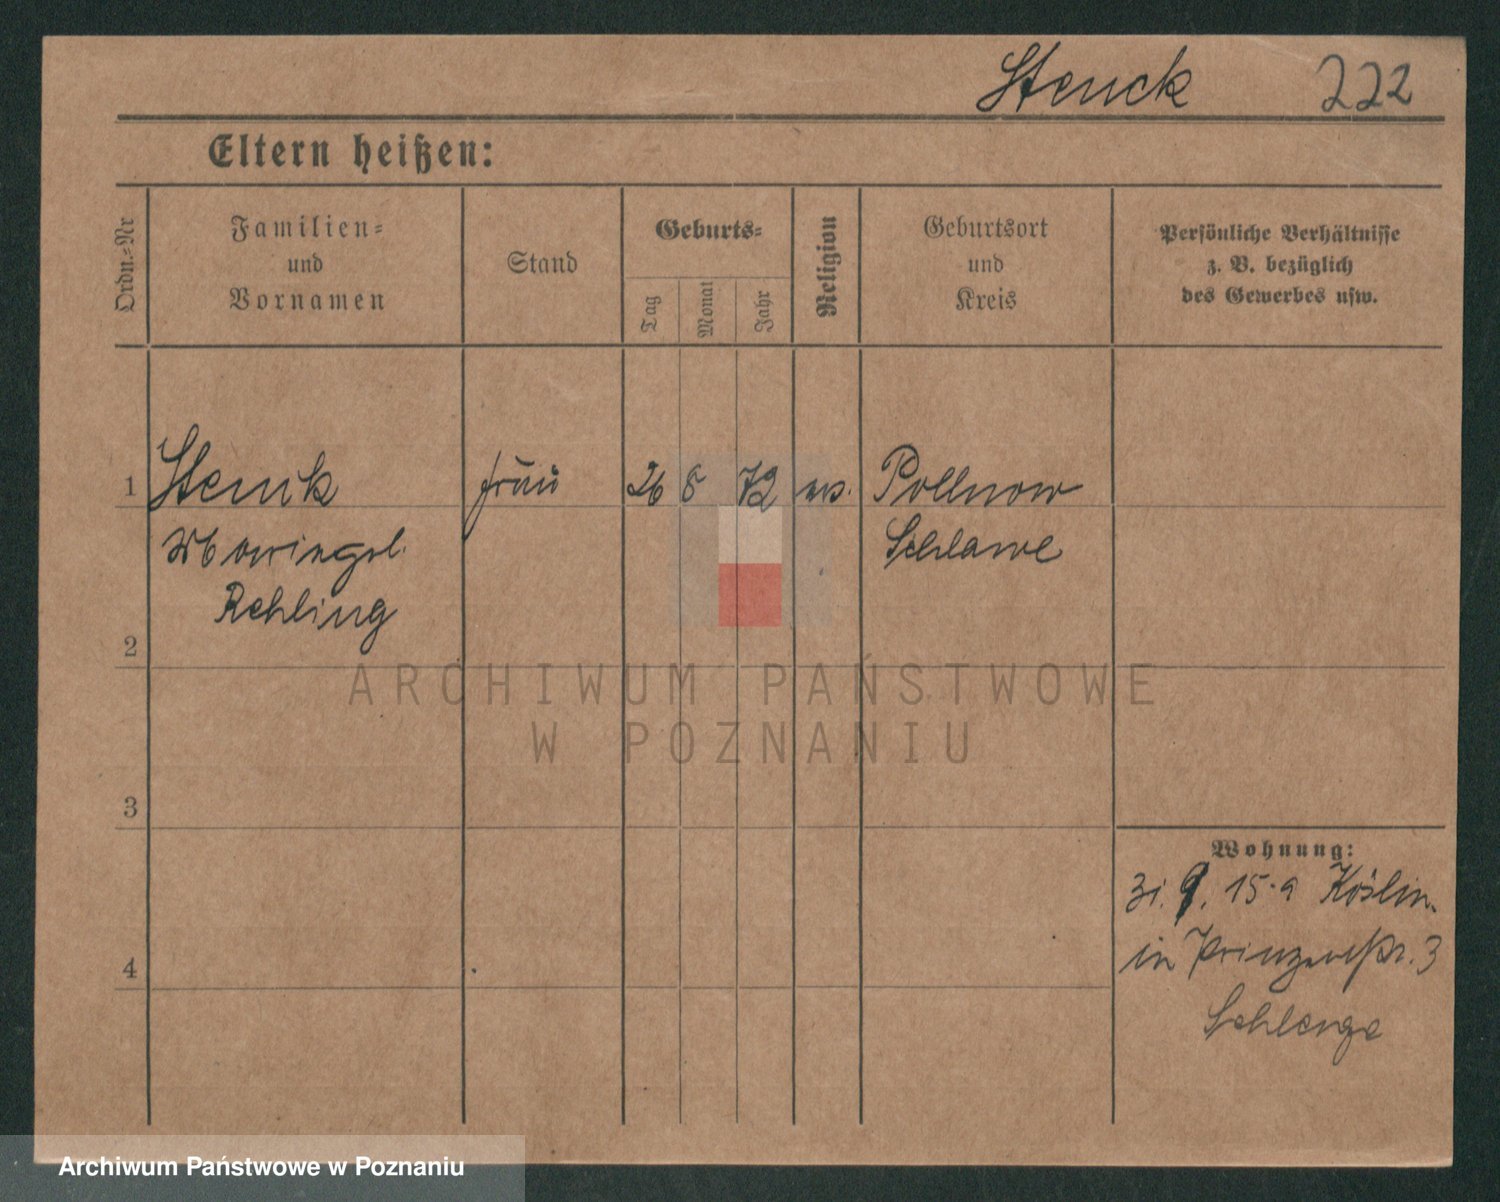 Stenck 222
Eltern heißen:
Ordn.-Nr
Familien-
und
Vornamen
Stand
Geburts-
Tag
Monat
Jahr
Religion
Geburtsort
und
Kreis
Persönliche Verhältnisse
z. B. bezüglich
des Gewerbes usw.
1 Stenck Frau 26 8 72 ev. Pollnow
Marie geb. Schlawe
Rehling
2
3
4
Wohnung:
zu 9. 15.9 Köslin
in Prinzenstr. 3
ARCHIWUM PAŃSTWOWE
W POZNANIU
Archiwum Państwowe w Poznaniu